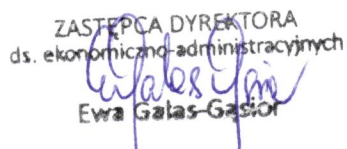 ZASTĘPCA DYREKTORA
ds. ekonomiczno-administracyjnych
Ewa Gałas-Gąsior